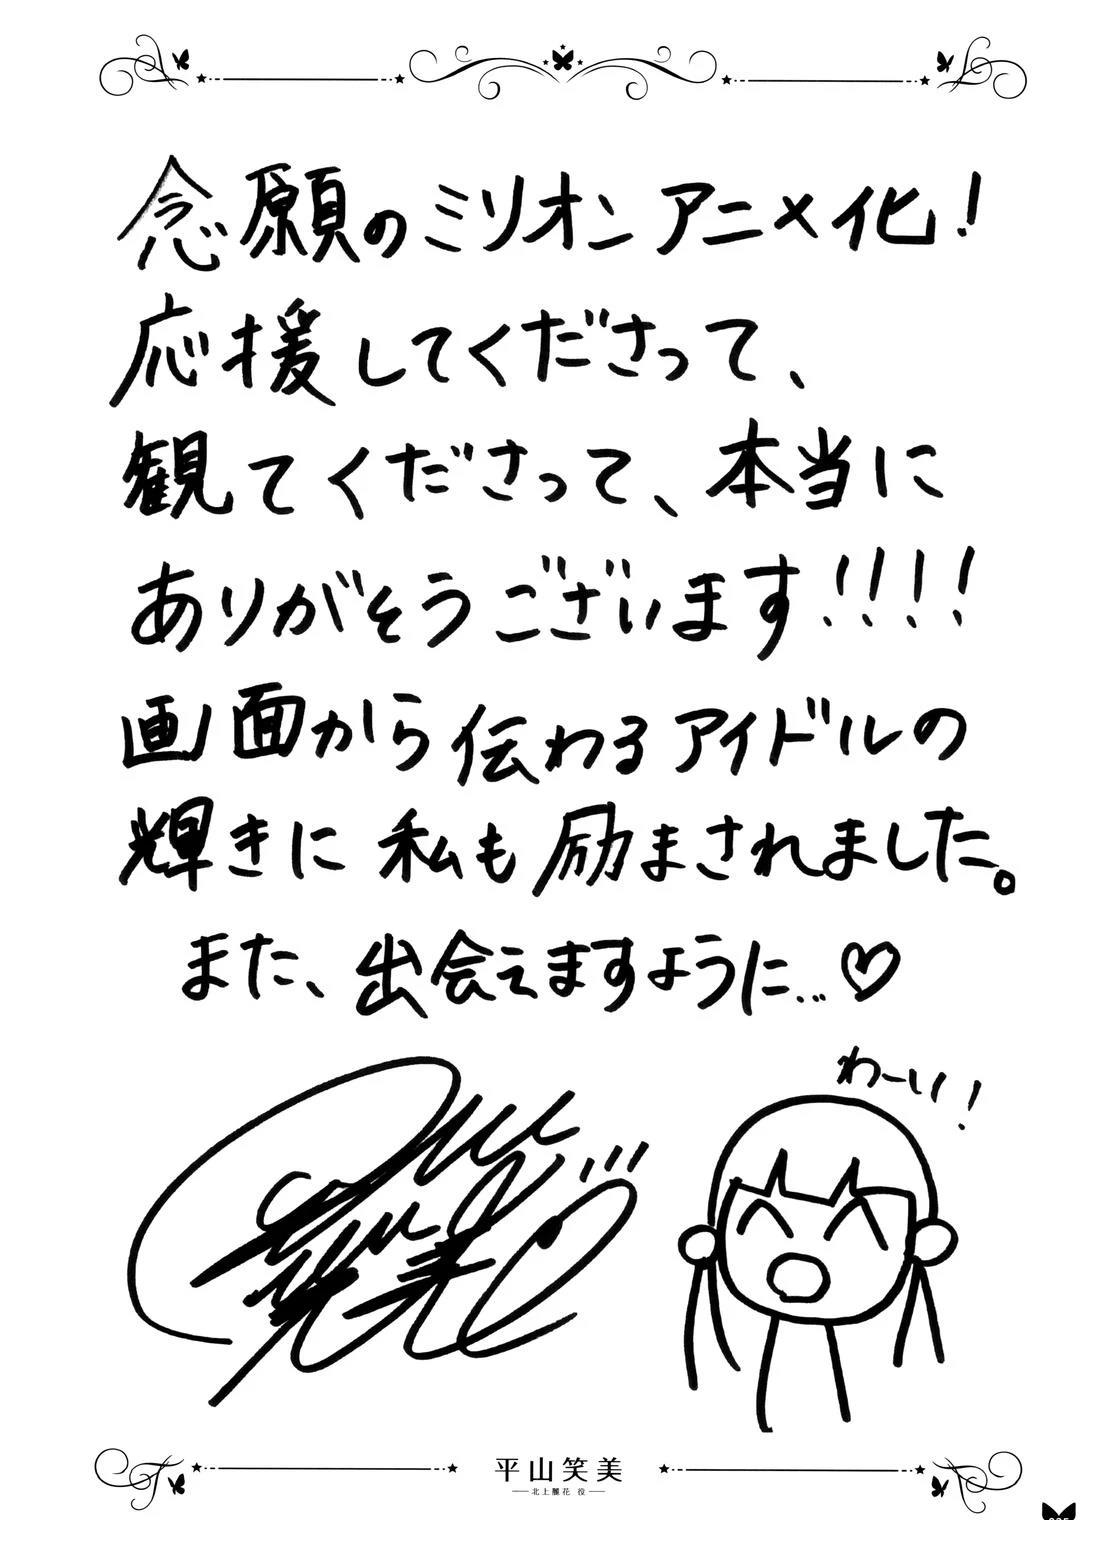 念願のミリオンアニメ化！
応援してくださって、
観てくださって、本当に
ありがとうございます！！！！
画面から伝わるアイドルの
輝きに私も励まされました。
また、出会えますように…♡
わーい！
平山笑美
北上麗花 役